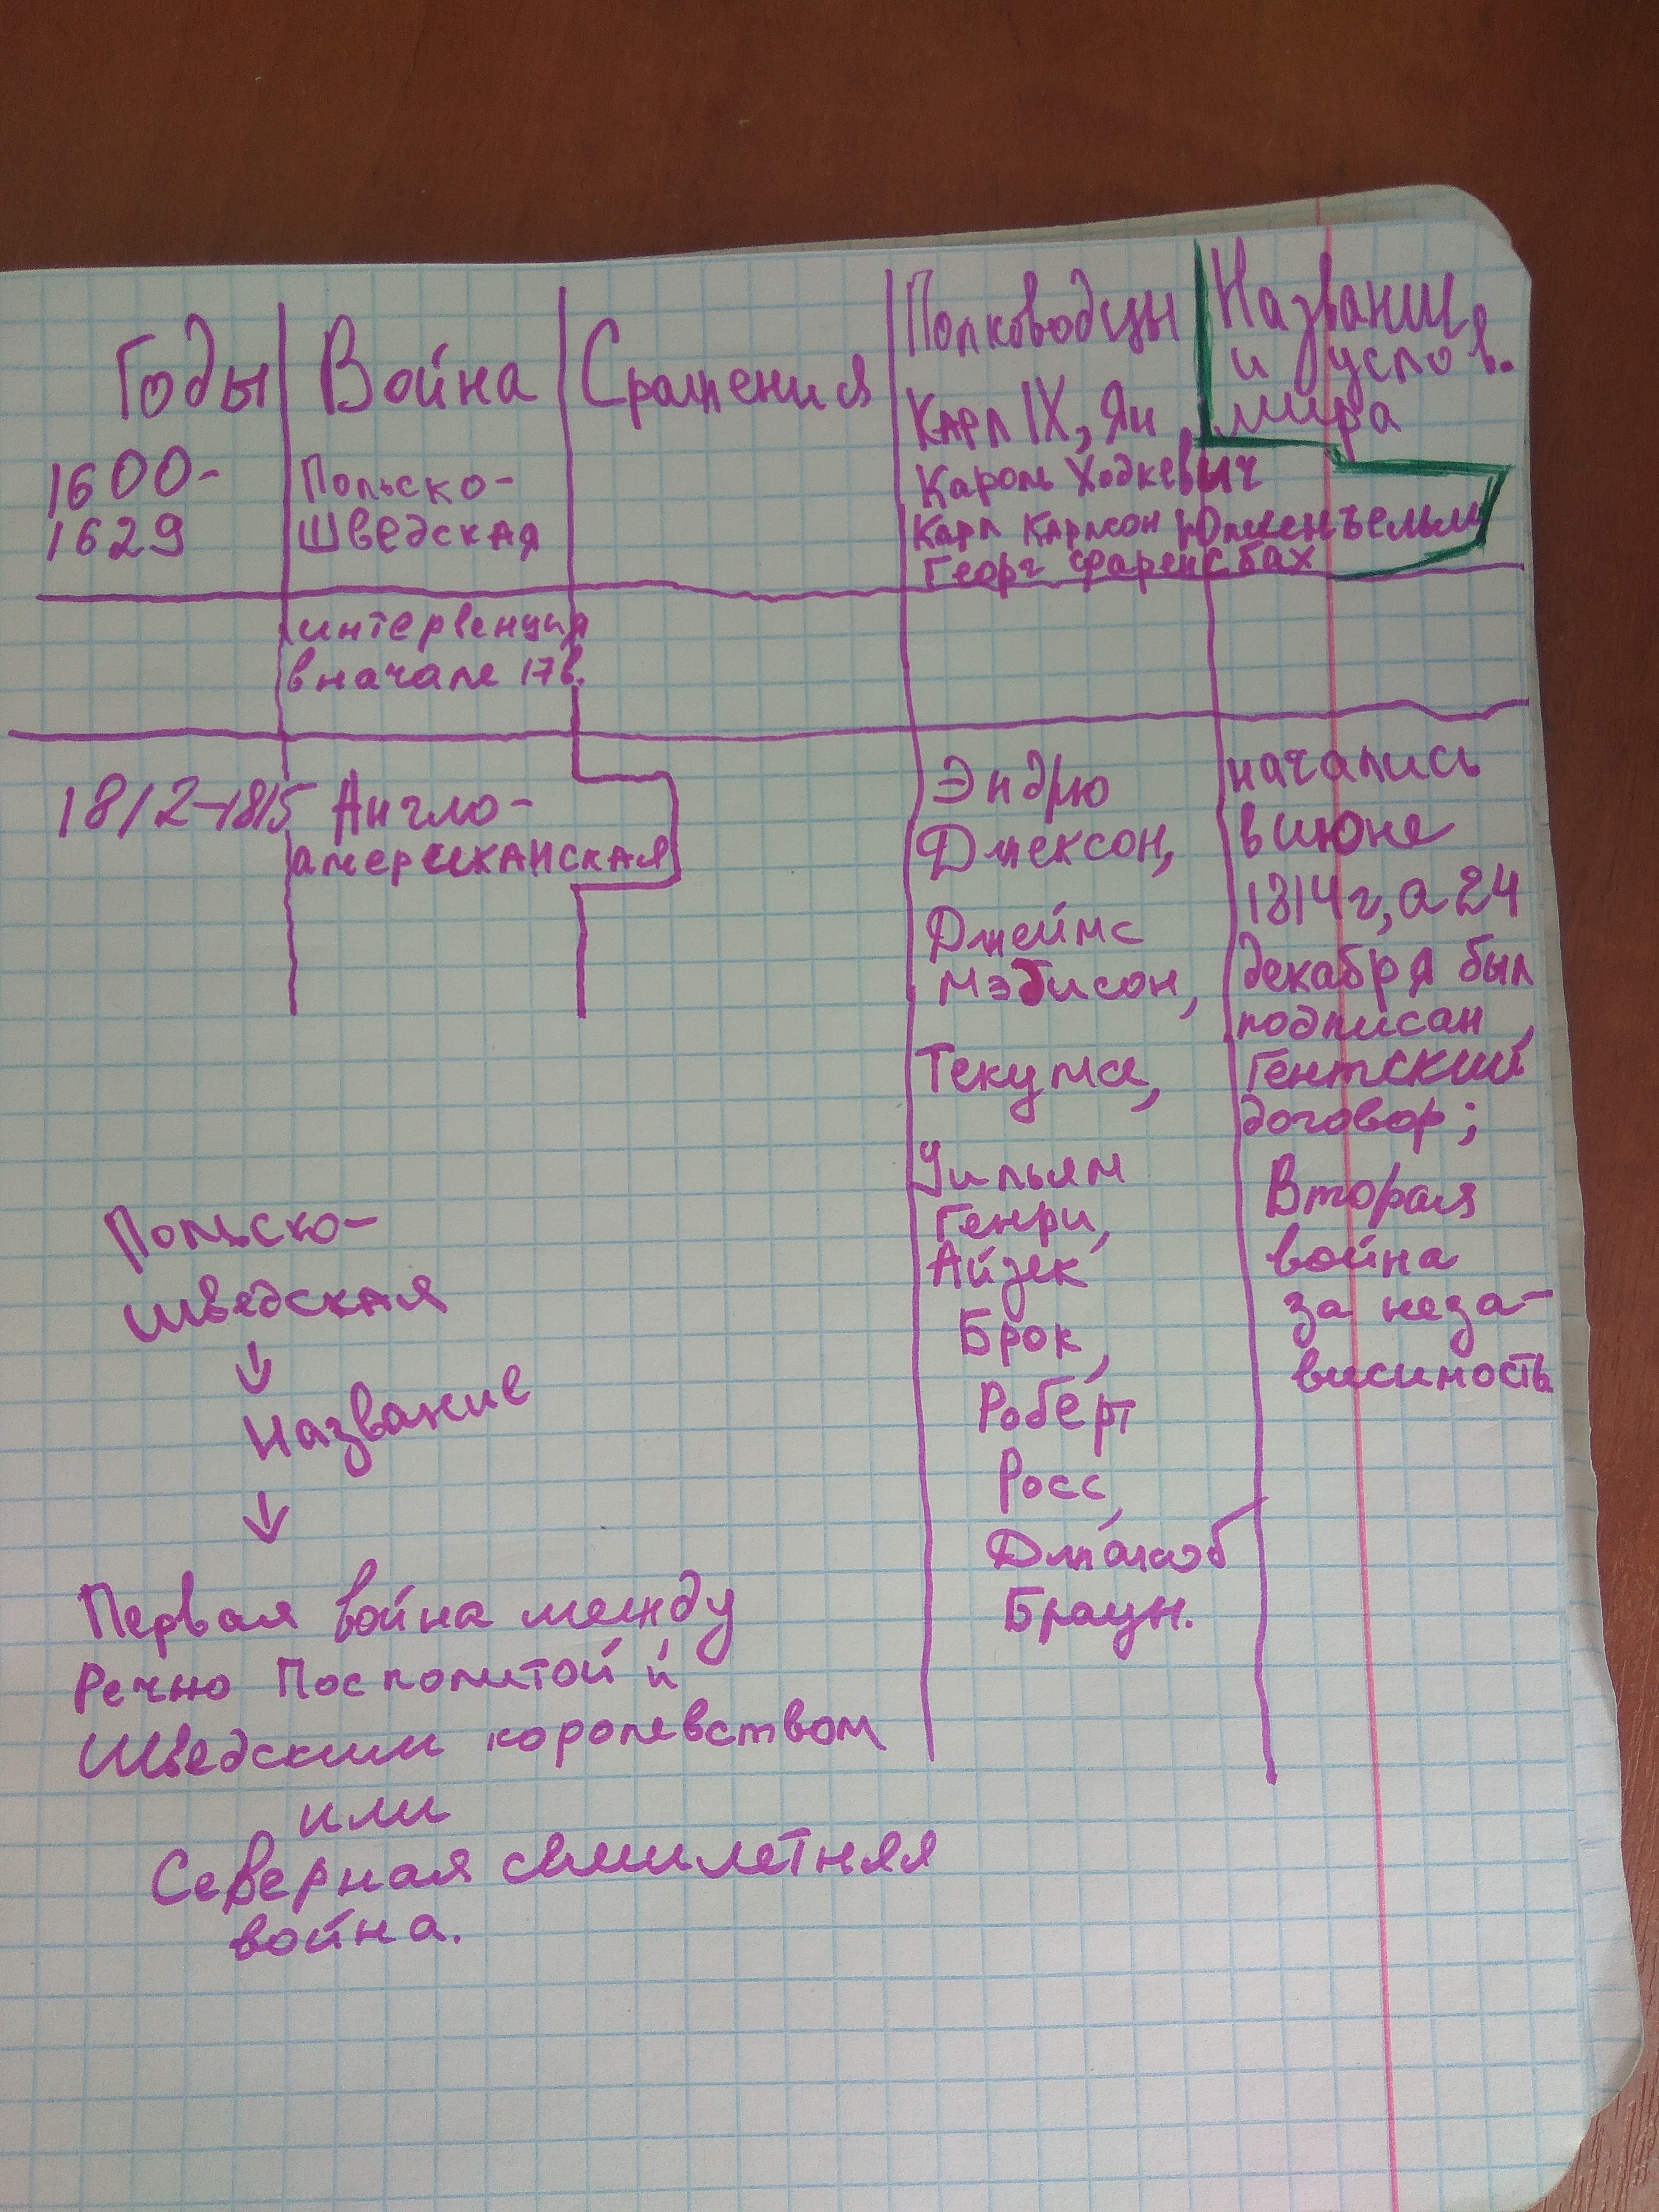 Годы
Война
Сражения
Полководцы
Названи
и услов.
мира
1600-
1629
Польско-
Шведская
Карл IX, Ян
Кароль Ходкевыч
Карл Карлсон Юлленъельм
Георг Фаренсбах
интервенция
в начале 17в.
1812-1815
Англо-
американская
Эндрю
Джексон,
Джеймс
Мэдисон,
Текумсе,
Уильям
Генри,
Айзек
Брок,
Роберт
Росс,
Джакоб
Браун.
начались
в июне
1814г, а 24
декабря был
подписан
Гентский
договор;
Вторая
война
за неза-
висимость
Польско-
шведская
↓
Название
↓
Первая война между
Речно Посполитой и
Шведским королевством
или
Северная семилетняя
война.